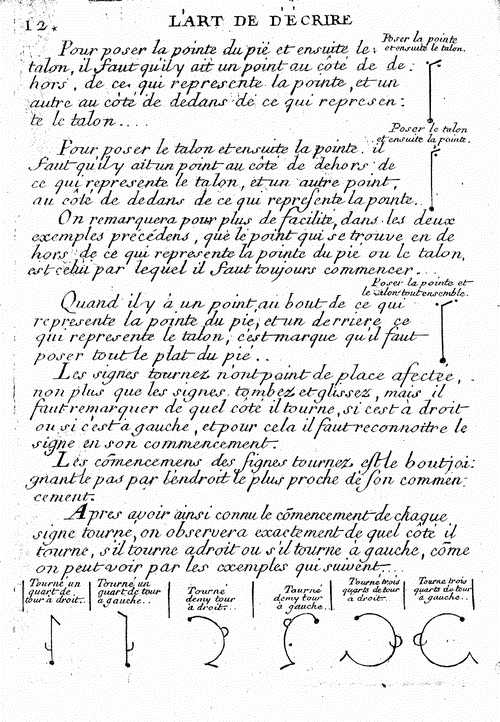 12.
L'ART DE D'ÉCRIRE
Poser la pointe
et ensuite le talon.
Pour poser la pointe du pié et ensuite le
talon, il faut qu'il y ait un point au côté de de:
hors, de ce qui represente la pointe, et un
autre au côté de dedans de ce qui represen:
te le talon....
Poser le talon
et ensuite la pointe.
Pour poser le talon et ensuite la pointe. il
faut qu'il y ait un point au côté de dehors de
ce qui represente le talon, et un autre point,
au côté de dedans de ce qui represente la pointe.
On remarquera pour plus de facilité, dans les deux
exemples précédens, que le point qui se trouve en de
hors de ce qui represente la pointe du pié ou le talon,
est celui par lequel il faut toujours commencer...
Poser la pointe et
le talon tout ensemble.
Quand il y à un point au bout de ce qui
represente la pointe du pie, et un derriere ce
qui represente le talon, c'est marque qu'il faut
poser tout le plat du pié..
Les signes tournez n'ont point de place afectée,
non plus que les signes tombez et glissez, mais il
faut remarquer de quel côté il tourne, si c'est à droit
ou si c'est à gauche, et pour cela il faut reconnoitre le
signe en son commencement.
Les cõmencemens des signes tournez est le bout joi:
gnant le pas par l'endroit le plus proche de son commen:
cement.
Apres avoir ainsi connu le cõmencement de chaque
signe tourné, on observera exactement de quel côté il
tourne, s'il tourne adroit ou s'il tourne à gauche, cõme
on peut voir par les exemples qui suivent...
Tourné un
quart de
tour à droit..
Tourné un
quart de tour
à gauche..
Tourné
demy tour
à droit...
Tourné
demy tour
à gauche..
Tourné trois
quarts de tour
à droit..
Tourné trois
quarts de tour
à gauche..